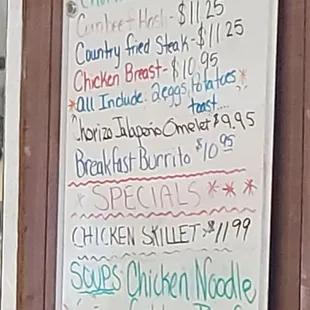 Hash-$11.25
Country fried Steak-$11.25
Chicken Breast-$10.95
*All Include: 2eggs, potatoes*
toast....
Chorizo Jalapeño Omelet $9.95
Breakfast Burrito $10.95
* SPECIALS ***
CHICKEN SKILLET-$11.99
SOUPS: Chicken Noodle